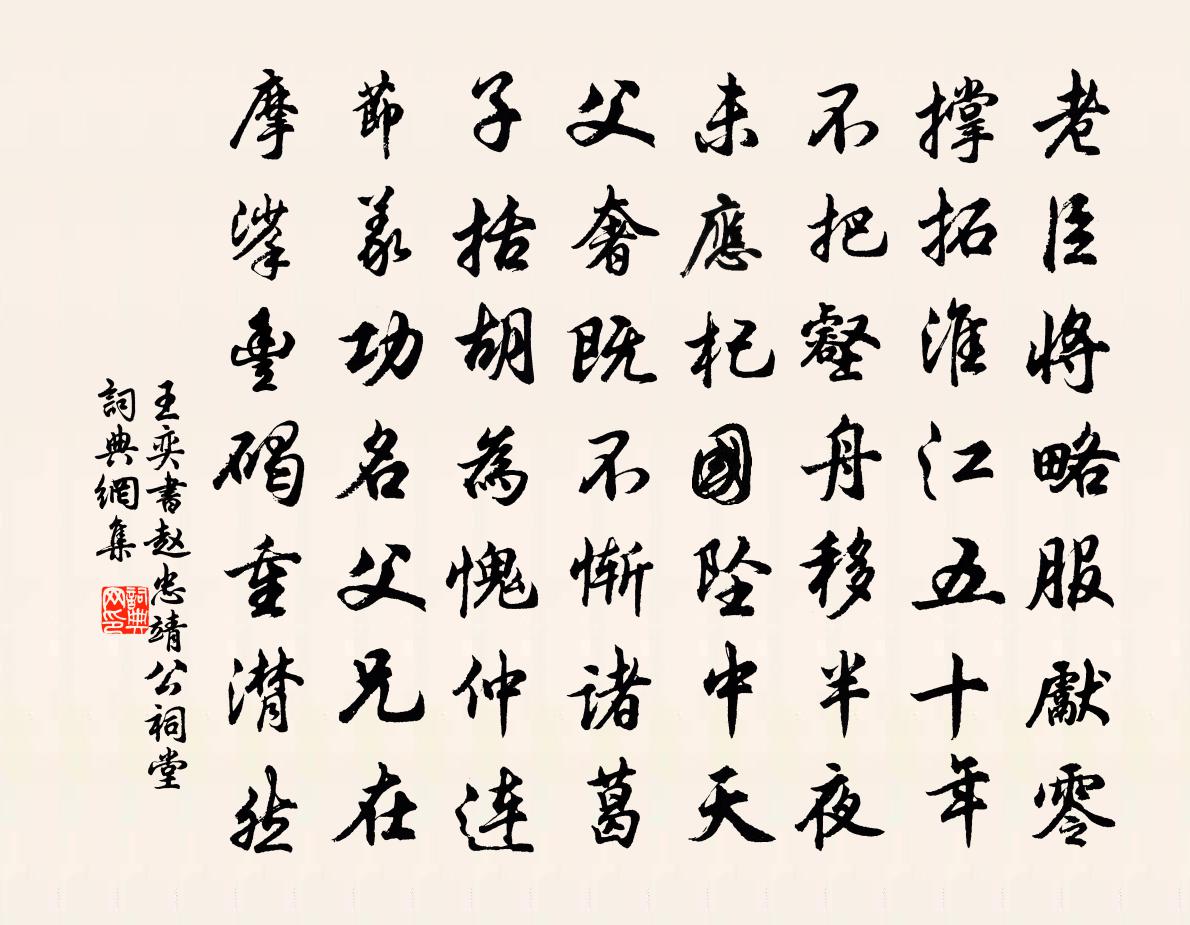 老臣將略服獻零
撐拓淮江五十年
不把壑舟移半夜
未應杞國墜中天
父奢既不慚諸葛
子括胡為愧仲連
節義功名父兄在
摩挲豐碣重潸然
王奕書赵忠靖公祠堂
詞典網集
詞典网印